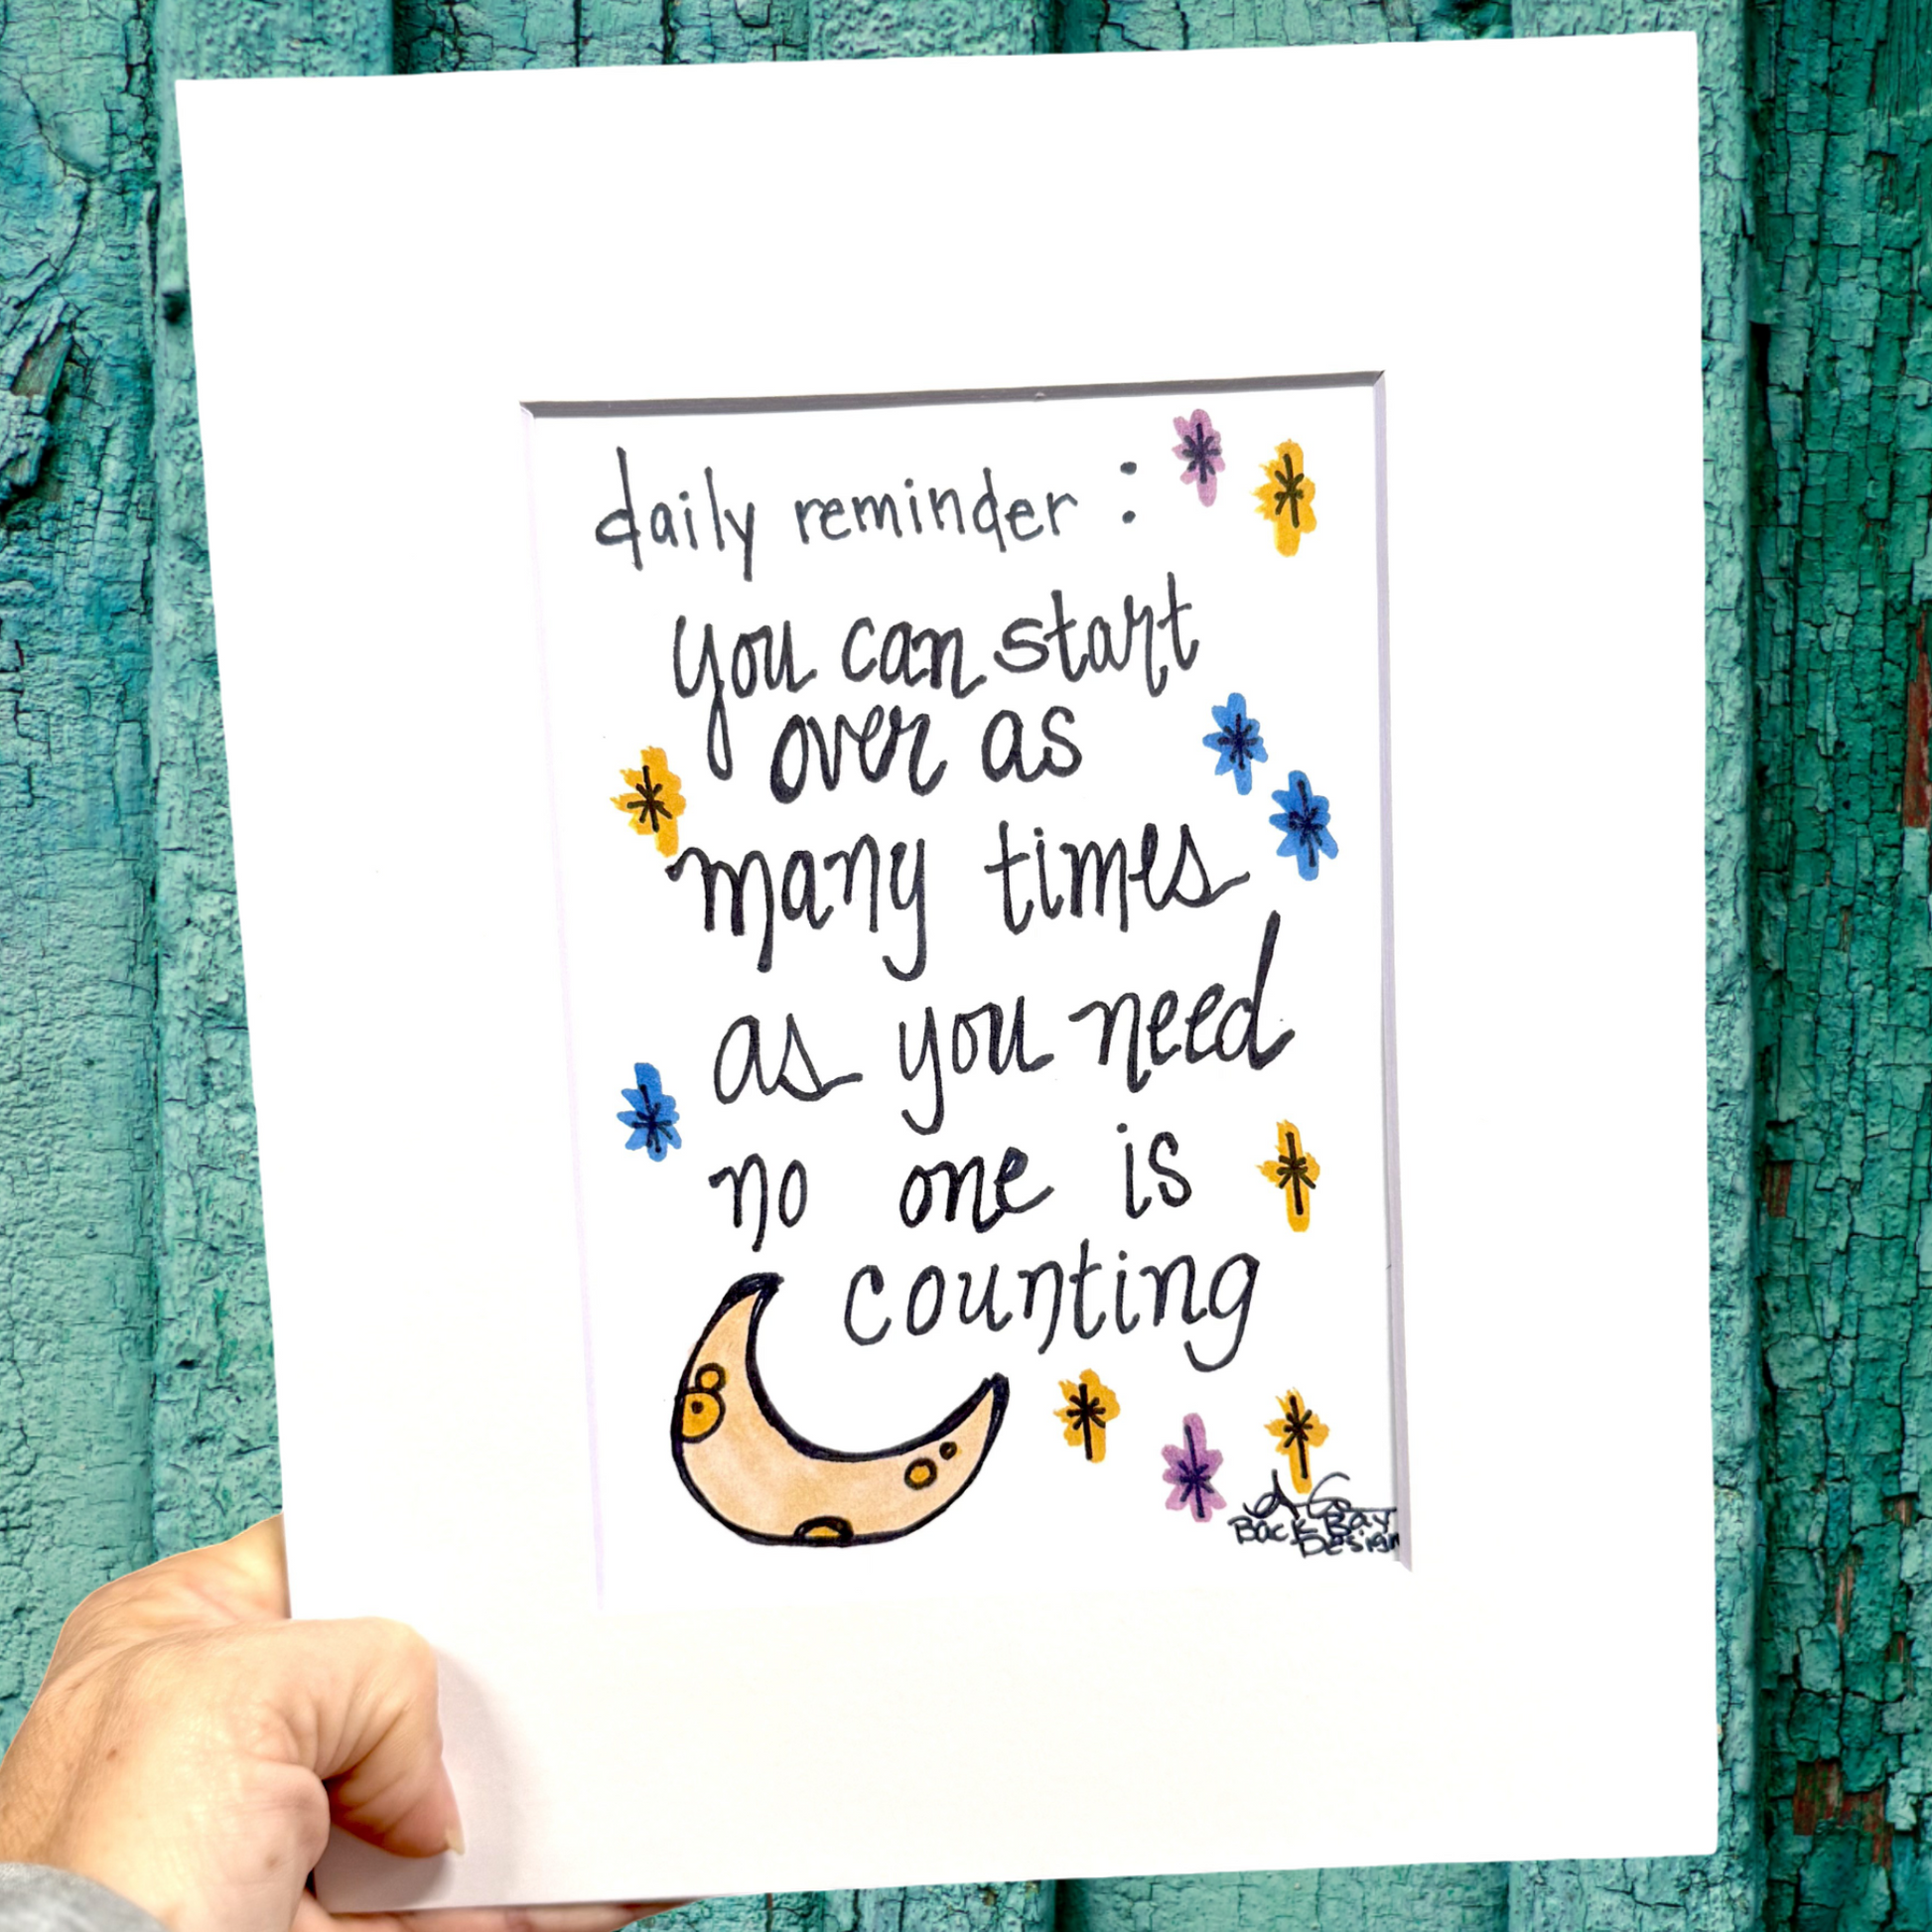 daily reminder :
you can start
over as
many times
as you need
no one is
counting
Back Bay
Design